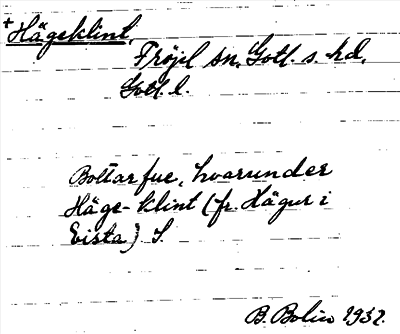 +Hägeklint,
Fröjel sn, Gotl. s. hd,
Gotl. l.
Bottarfve, hvarunder
Häge-klint (fr. Hägur i
Eista) S.
B. Bolin 1932.